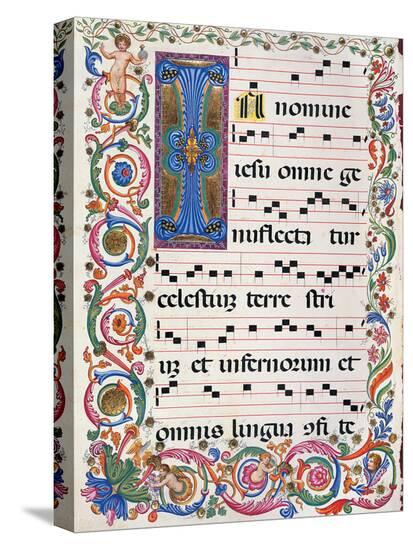 IN nomine
iesu omne ge
nuflecta tur
celestiuz terre stri
uz et infernorum et
omnis lingua ꝯfi te